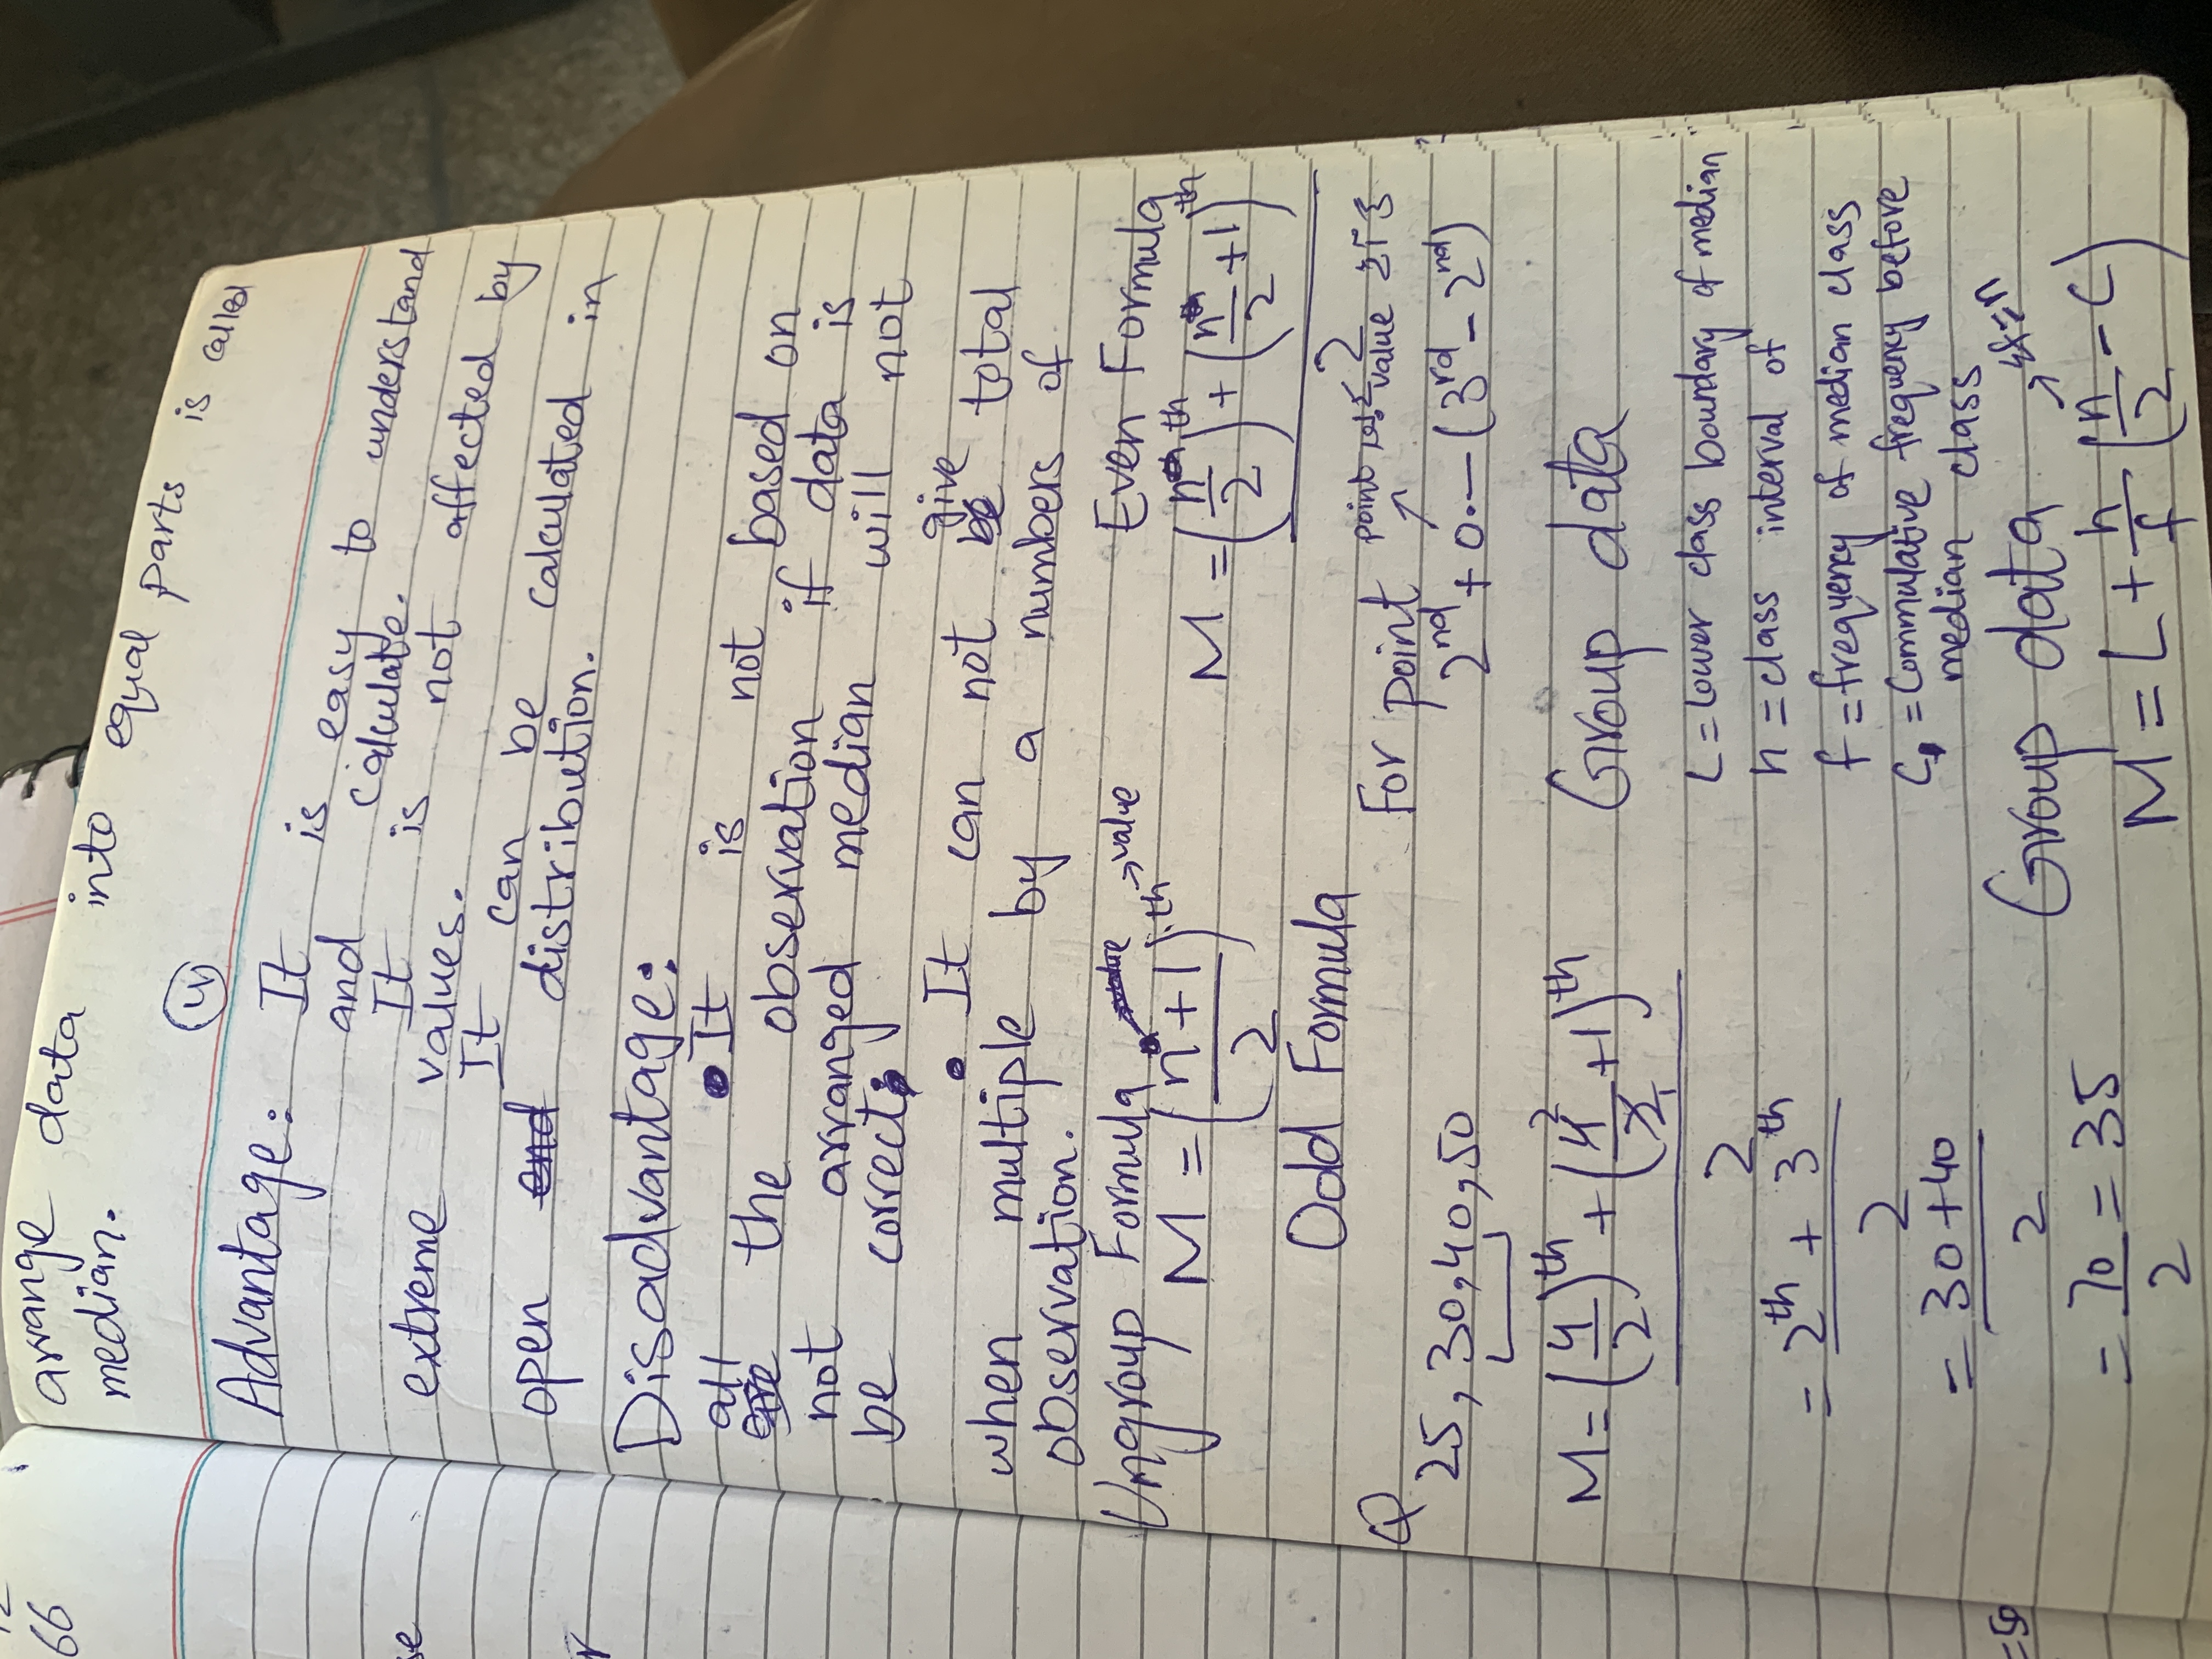 12
66
se
r
=50
arrange data into equal parts is called
median.
4
Advantage: It is easy to understand
and calculate.
It is not affected by
extreme values.
It can be calculated in
open end distribution.
Disadvantage:
• It is not based on
all
are the observation if data is
not arranged median will not
be correct.
• It can not give be total
when multiple by a numbers of
observation.
Ungroup Formula value → value
M = ((n+1)/2)th
Odd Formula
Even Formula
M = ((n/2)th + (n/2 + 1)th)/2
For point
point value
2nd + 0.— (3rd - 2nd)
Q
25, 30, 40, 50
M = ((4/2)th + (4/2 + 1)th)/2
= (2th + 3th)/2
= (30+40)/2
= 70/2 = 35
Group data
L = Lower class boundary of median
h = class interval of
f = frequency of median class
C = Commulative frequency before
median class
Group data
→ Σf = n
M = L + h/f (n/2 - C)